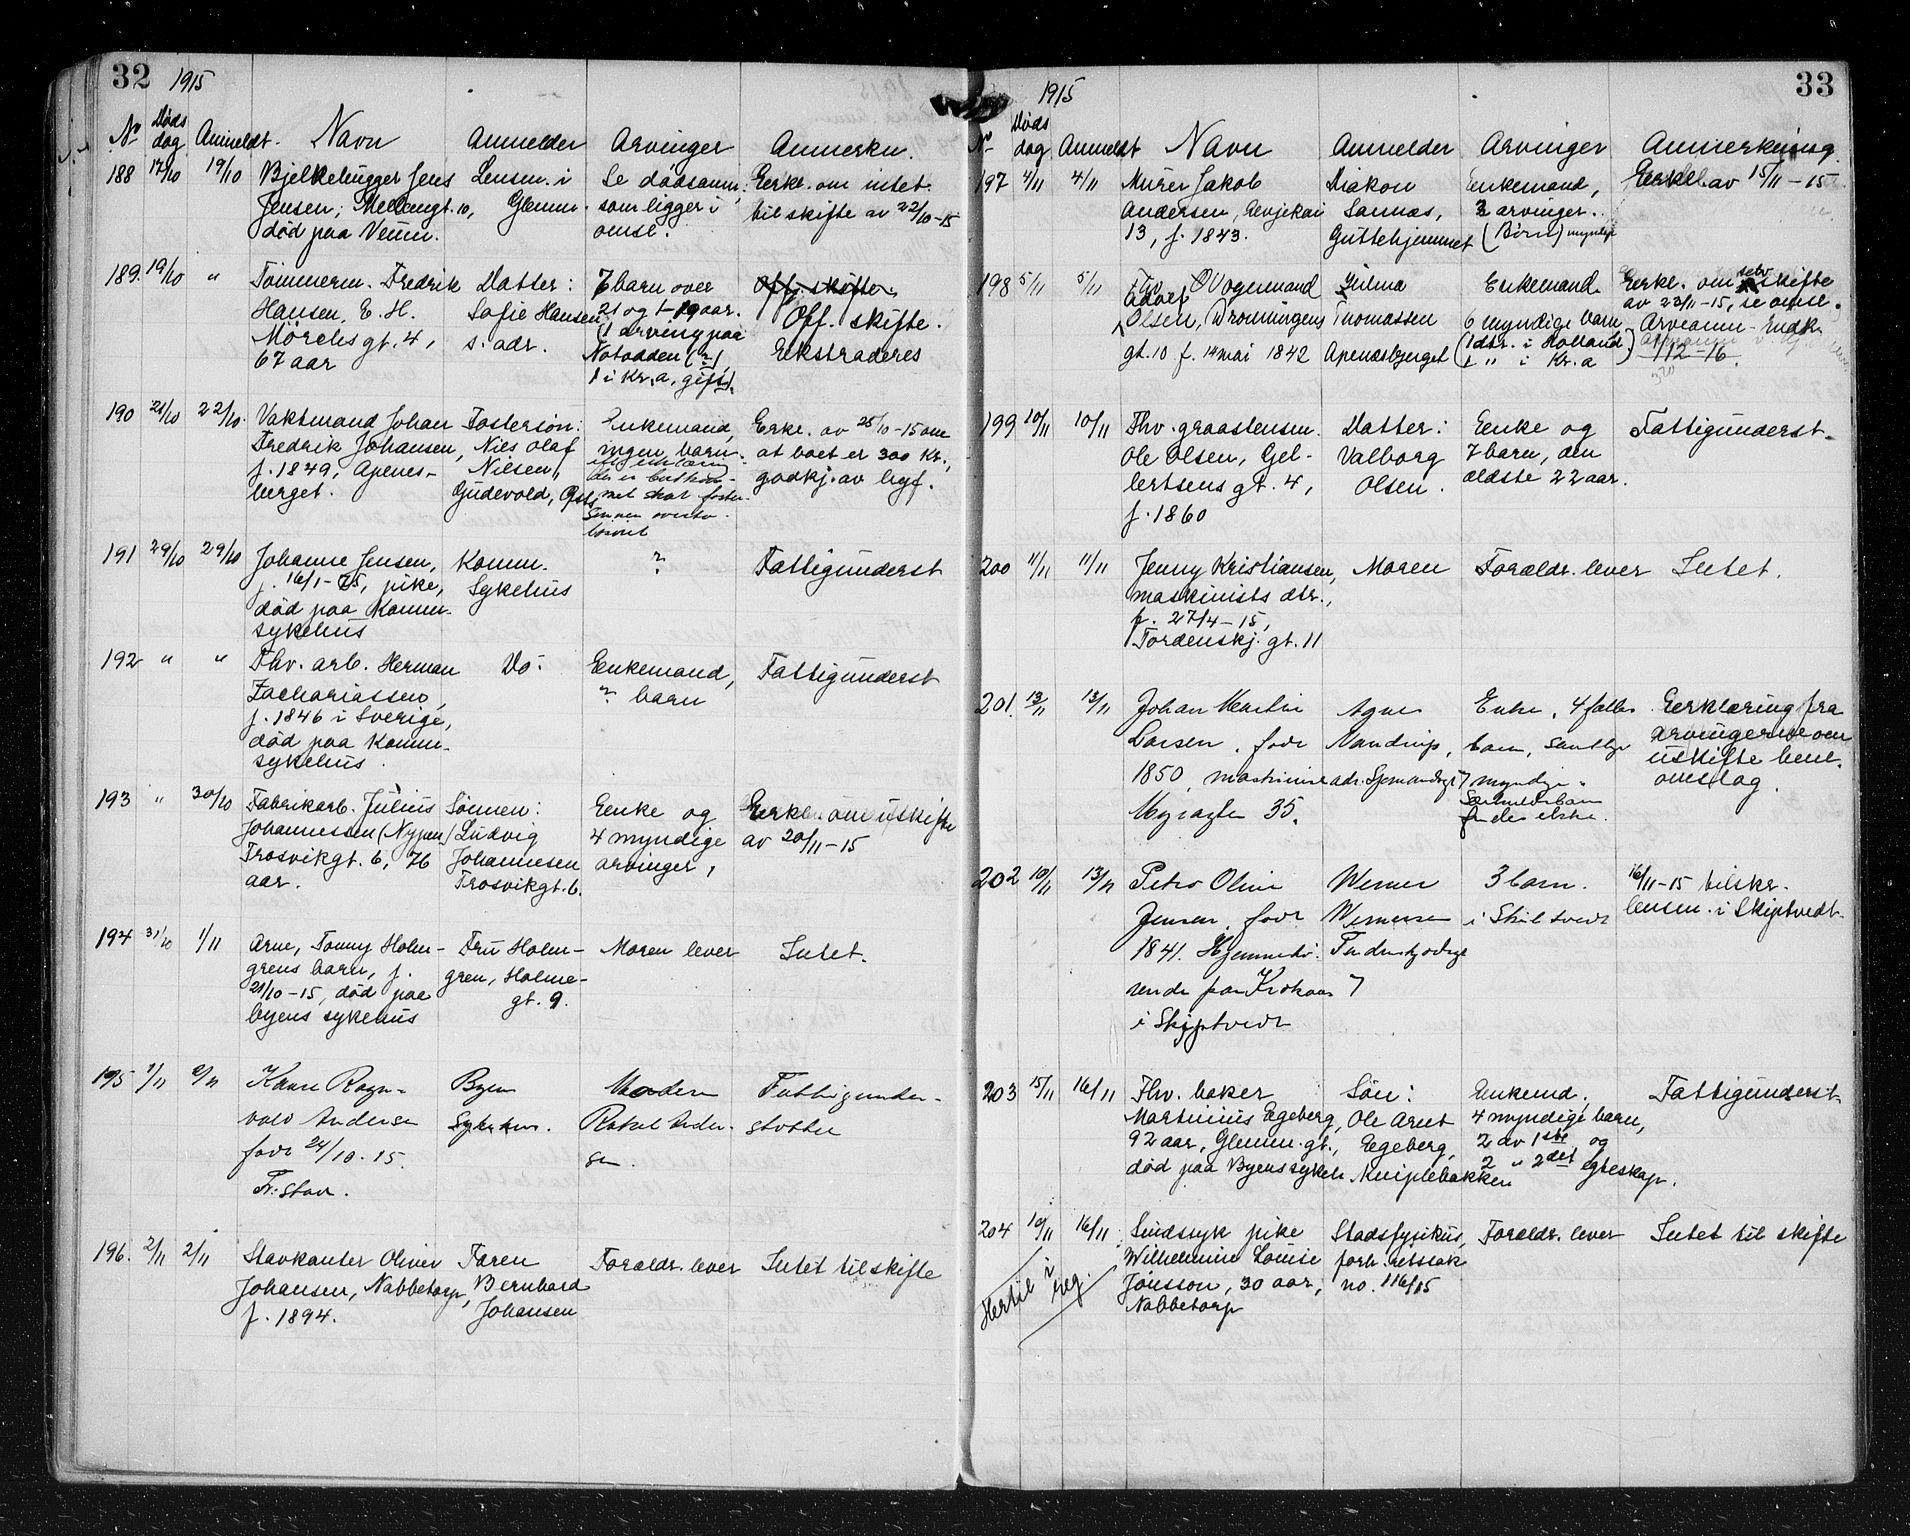 32 1915
No Døds dag Anmeldt. Navn Anmelder Arvinger Anmerkn.
188 17/10 19/10 Bjelkehugger Jens Lensm. i Se dødsanm. Erkl. om intet
Jensen, Mellemgt. 10, Glemm. som ligger i til skifte av 22/10-15
død paa Venm. omsl.
189. 19/10 " Tømmerm. Fredrik Datter: 7 barn over Off. skifte.
Hansen, E. H. Sofie Hansen 21 og 1-19 aar. Off. skifte.
Mørchs gt. 4, s. adr. (1 arving paa Ekstraderes
67 aar Notodden (?),
1 i Kr.a, gift).
190 21/10 22/10. Vaktmand Johan Fostersøn: Enkemand, Erkl. av 25/10-15 om
Fredrik Johansen, Niels Olaf ingen barn. at boet er 300 Kr.,
f. 1849, Apenes- Nilsen, godkj. av byf.
berget. Gudevold, met skal foster-
sønnen overta
boet
191 29/10 29/10 Johanne Jensen, Komm. ? Fattigunderst
f. 16/1-75, pike, Sykehus
død paa Komm.
sykehus
192 " " Fhv. arb. Herman Do: Enkemand, Fattigunderst
Zachariassen, ? barn
f. 1846 i Sverige,
død paa Komm.
sykehus.
193 " 30/10 Fabrikarb. Julius Sønnen: Enke og Erkl. om uskifte
Johannessen (Nygaard) Ludvig 4 myndige av 20/11-15
Trosvikgt. 6, 76 Johannesen arvinger,
aar. Trosvikgt. 6.
194 31/10 1/11 Arne, Tomny Holm- Fru Holm- Moren lever Intet.
grens barn, f. gren, Holme-
21/10-15, død paa gt. 9.
byens sykehus
195 1/11 2/11 Kaare Ragn- Byens Moderen Fattigunder-
vald Andersen Sykehus. Rakel Ander- støttet
født 24/10-15. sen.
Fr:stad.
196. 2/11 2/11 Stavkanter Oliver Faren Forældr. lever Intet til skifte
Johansen, Nabbetorp, Bernhard
f. 1894. Johansen
1915 33
No Døds dag Anmeldt Navn Anmelder Arvinger Anmerkning
197 4/11 4/11 Murer Jakob Diakon Enkemand, Erkl. av 15/11-15
Andersen, Gevjekai Sannæs, 2 arvinger.
13, f. 1843. Guttehjemmet (Børn) myndige
198 5/11 5/11 Fhv. Vognmand Hilma Enkemand. Erkl. om selvskifte
Adolf av 23/11-15, se omsl.
Olsen, Dronningens Thomassen 6 myndige barn Arveanm-Endk
gt. 10 f. 14 mai 1842 Apenæsbjerget (1 dtr. i Holland 1/12-16.
1 " i Kr.a)
199 10/11 10/11 Fhv. graastensm. Datter: Enke og Fattigunderst.
Ole Olsen, Gel- Valborg 7 barn, den
lertsens gt. 4, Olsen. ældste 22 aar.
f. 1860
200 11/11 11/11 Jenny Kristiansen, Moren Forældr. lever Intet.
maskinists dtr.,
f. 27/4-15,
Tordenskj. gt. 11
201. 13/11 13/11 Johan Martin Agnes Enke, 4 fælles Erklæring fra
Larsen, født Nandrup, barn, samtlige arvingerne om
1850, maskinist adr. myndige. uskifte beml.
Myragten 35. Særkuldsbarn omslag.
findes ikke.
202 10/11 13/11 Petra Oline Werner 3 barn. 16/11-15 tilskr.
Jensen, født Wernersen i Skiptvedt lensm. i Skiptvedt.
1841. Hjemmehø- Tordenskjoldsgt
rende paa Krokaas 7
i Skiptvedt
203 15/11 16/11 Fhv. baker Søn: Enkemd, Fattigunderst.
Martinius Egeberg, Ole Arnt 4 myndige barn,
92 aar, Glemm. gt., Egeberg, 2 av 1ste og
død paa Byens sykeh. Kniplebakken 2 " 2det egteskap.
204 10/11 16/11 Sindssyk pike Stadsfysikus, Forældr. lever Intet til skifte
Wilhelmine Louise forh. retssak
Jonsson, 30 aar, no. 116/15
Nabbetorp
Hertil i reg.